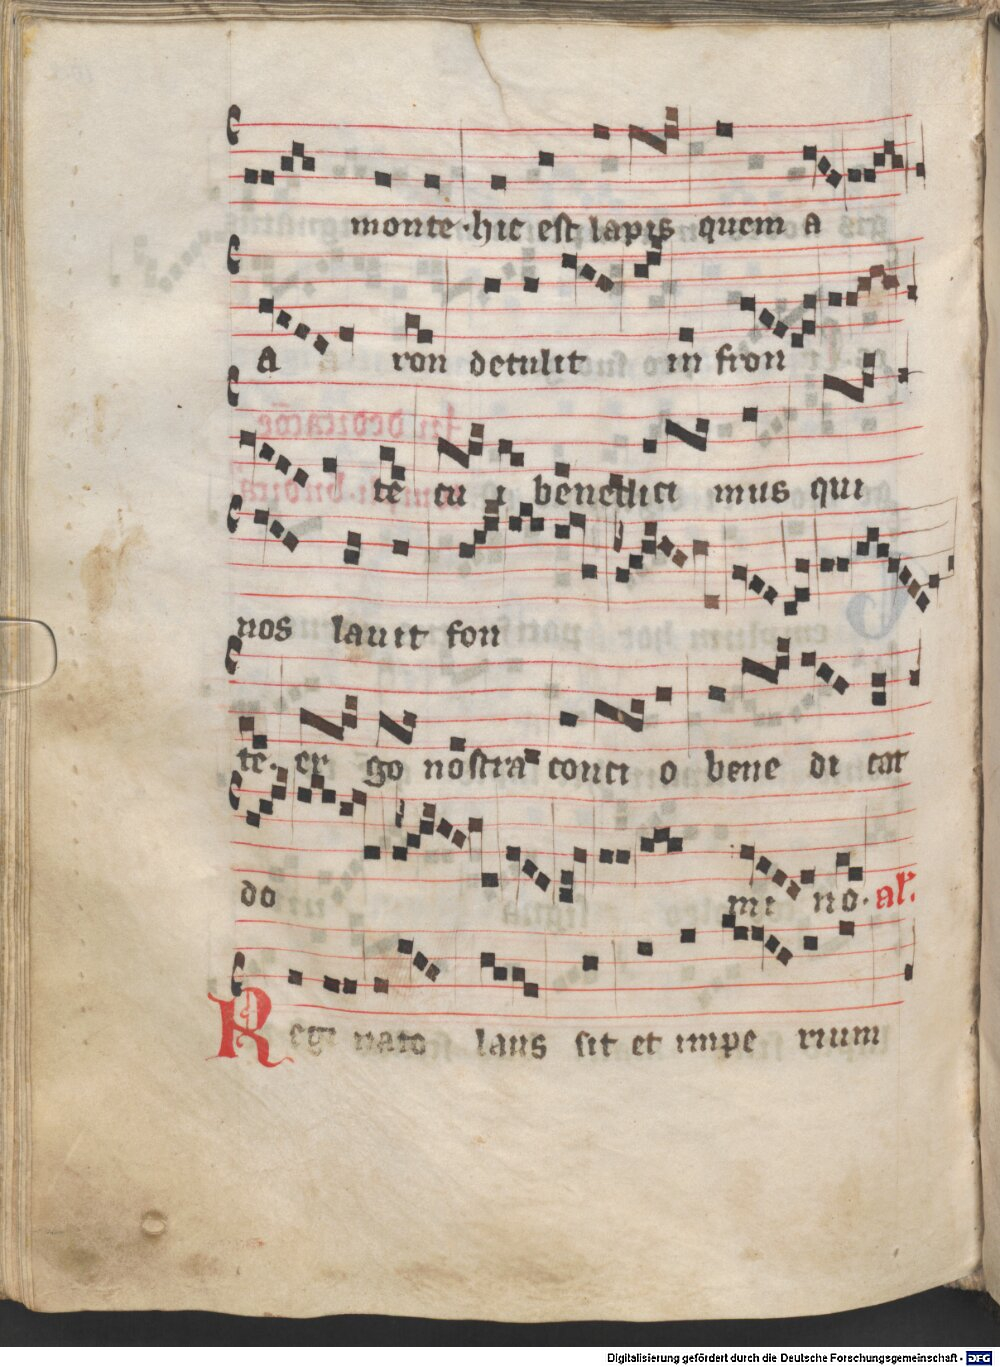 monte · hic est lapis quem a
a ron detulit in fron
te tu i benedici mus qui
nos lauit fon
te. er go nostra conci o bene di cat
do mi no. al'.
Regi nato laus sit et impe rium
Digitalisierung gefördert durch die Deutsche Forschungsgemeinschaft - DFG